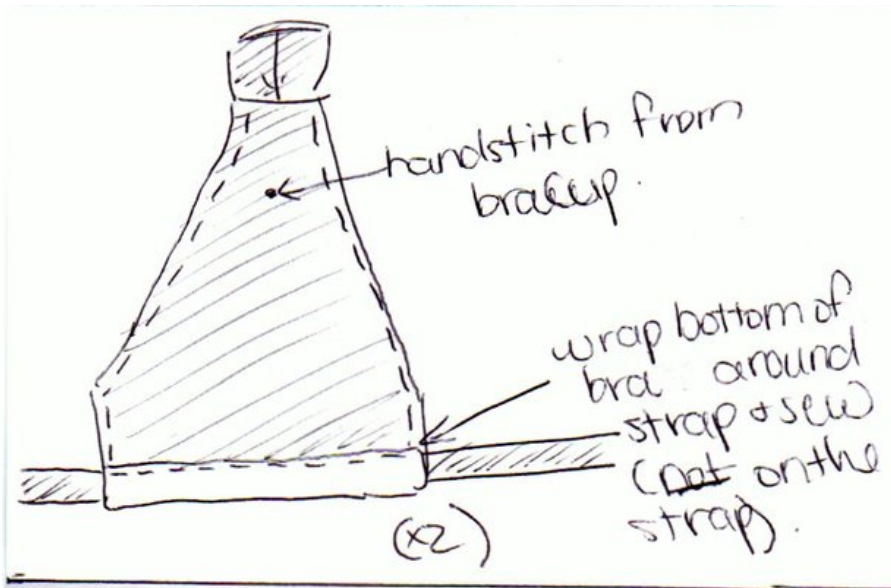 handstitch from
bracup.
wrap bottom of
bra around
strap & sew
(not on the
strap).
(x2)